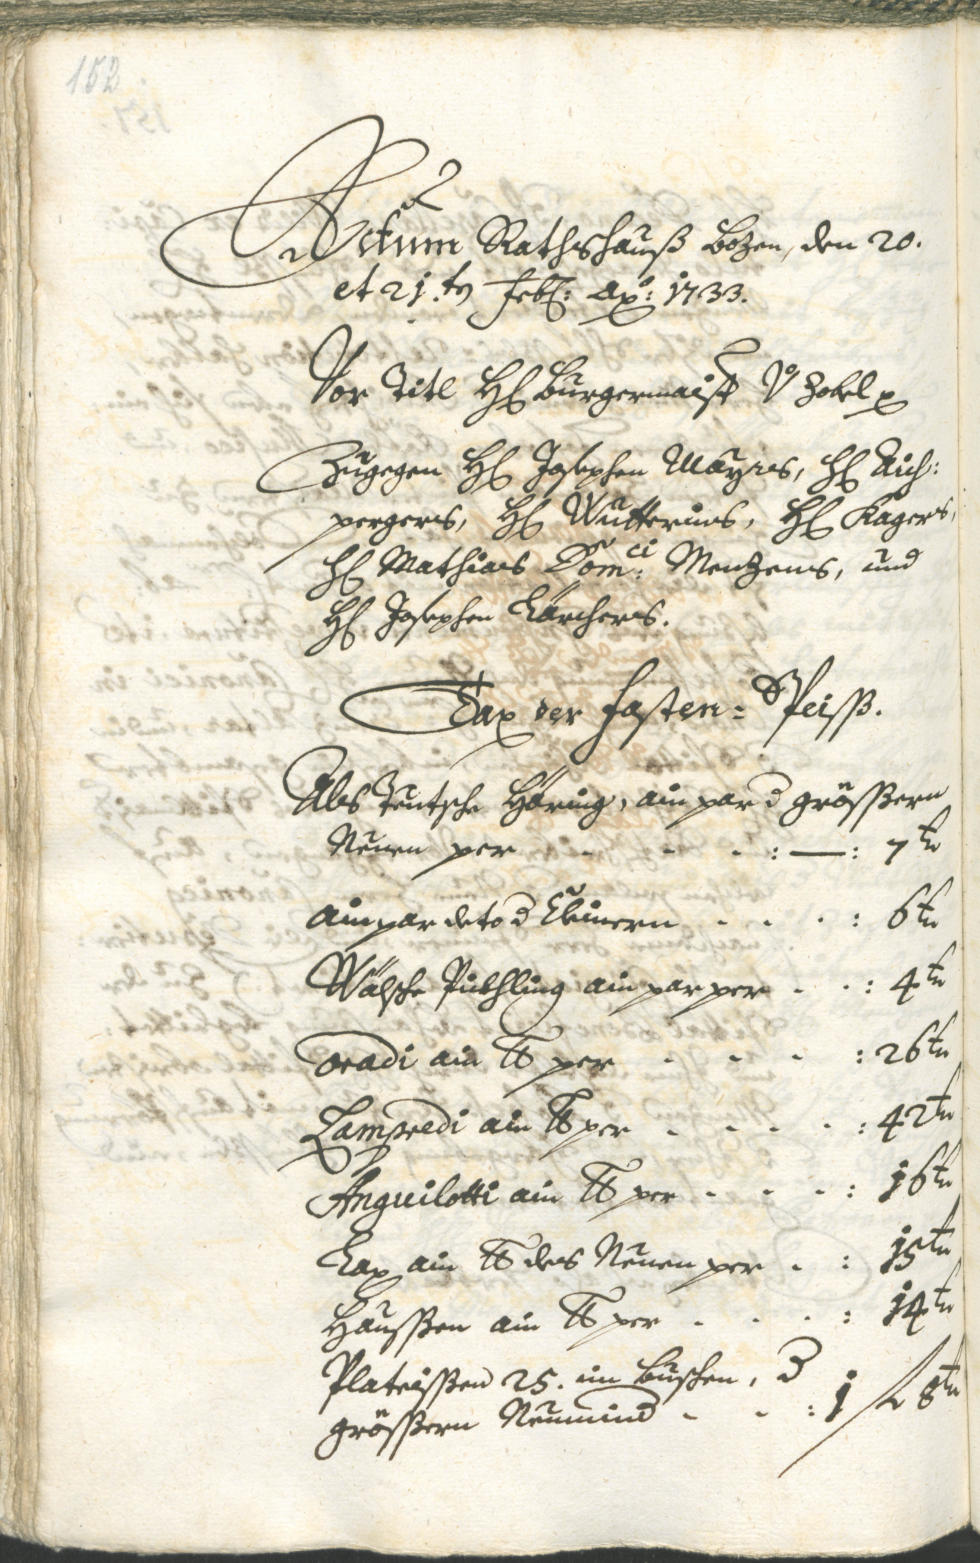 152
Actum Rathshauß Bozen, den 20.
et 21.ten Feb: Ao: 1733.
Vor Titl H Burgermaister v Zobel
Zugegen H Josephen Mayrs, H Aich:
pergers, H Wutterins, H Kagers,
H Mathias Dom:ci Menzens, und
H Josephen Kärchers.
Tax der Fasten= Speiß.
Als Teutsche Häring, ain par d größern
Neuen per - - - : — : 7 kr
ain par deto d klainern - - - : 6 kr
Wälsche Pükhling ain par per - - : 4 kr
oradi ain ℔ per - - - : 26 kr
Lampredi ain ℔ per - - - - : 42 kr
Anguilotti ain ℔ per - - - : 16 kr
Lax ain ℔ des Neuen per - : 15 kr
Haussen ain ℔ per - - - : 14 kr
Plateissen 25. im Buschen, d
größern Neuen - - : 1 f 8 kr